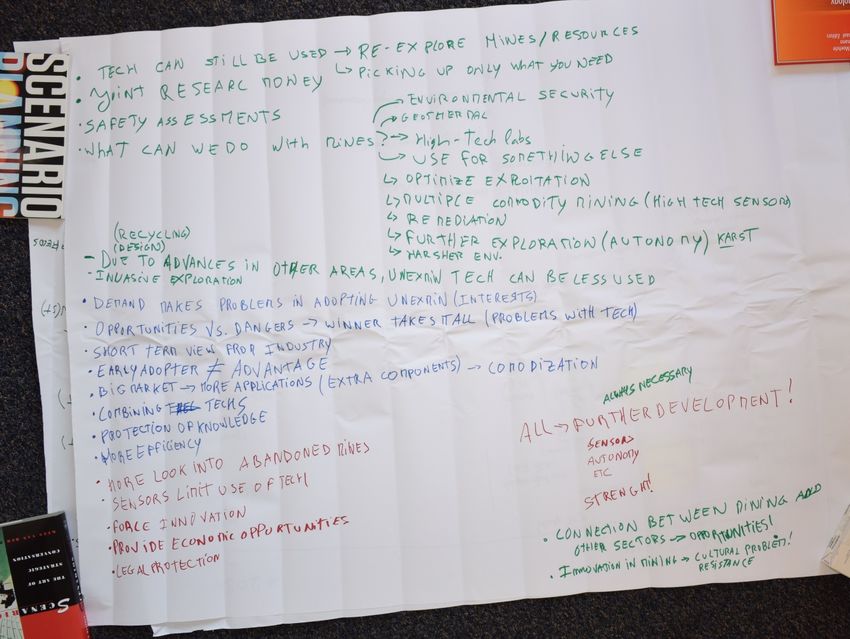 • TECH CAN STILL BE USED → RE-EXPLORE MINES/RESOURCES
↳ PICKING UP ONLY WHAT YOU NEED
• JOINT RESEARC MONEY
• SAFETY ASSESSMENTS
• WHAT CAN WE DO WITH MINES?
ENVIRONMENTAL SECURITY
GEOTHERMAL
→ High-Tech labs
USE FOR SOMETHING ELSE
↳ OPTIMIZE EXPLOITATION
↳ MULTIPLE COMMODITY MINING (HIGH TECH SENSORS)
↳ REMEDIATION
↳ FURTHER EXPLORATION (AUTONOMY) KARST
↳ HARSHER ENV.
(RECYCLING)
(DESIGN)
- DUE TO ADVANCES IN OTHER AREAS, UNEXMIN TECH CAN BE LESS USED
- INVASIVE EXPLORATION
• DEMAND MAKES PROBLEMS IN ADOPTING UNEXMIN (INTERESTS)
• OPPORTUNITIES VS. DANGERS → WINNER TAKES IT ALL (PROBLEMS WITH TECH)
• SHORT TERM VIEW FROM INDUSTRY
• EARLY ADOPTER ≠ ADVANTAGE
• BIG MARKET → MORE APPLICATIONS (EXTRA COMPONENTS) → COMODIZATION
• COMBINING TECHS
• PROTECTION OF KNOWLEDGE
• MORE EFFICIENCY
• MORE LOOK INTO ABANDONED MINES
• SENSORS LIMIT USE OF TECH
• FORCE INNOVATION
• PROVIDE ECONOMIC OPPORTUNITIES
• LEGAL PROTECTION
ALWAYS NECESSARY
ALL → FURTHER DEVELOPMENT!
SENSORS
AUTONOMY
ETC
STRENGHT!
• CONNECTION BETWEEN MINING AND
OTHER SECTORS → OPPORTUNITIES!
• INNOVATION IN MINING → CULTURAL PROBLEM!
RESISTANCE
SCENARIO
PLANNING
THE ART OF
STRATEGIC
CONVERSATION